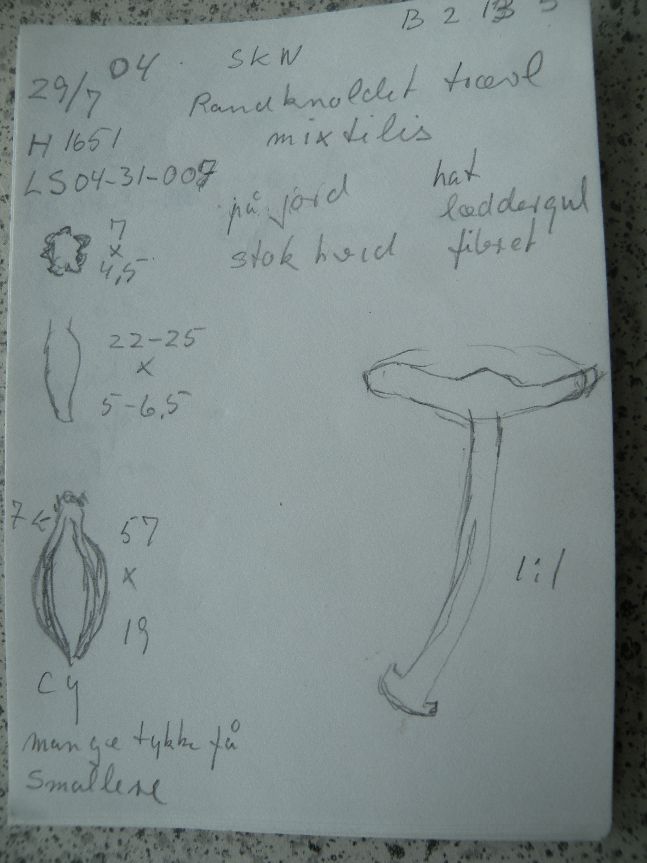 B 2 13 5
29/7 04. SKN
Randknoldet trævl
mixtilis
H 1651
LS04-31-007
på jord
stok hvid
hat
læddergul
fibret
7
x
4,5
22-25
x
5-6,5
7
57
x
19
1:1
Cy
mange tykke få
Smallere